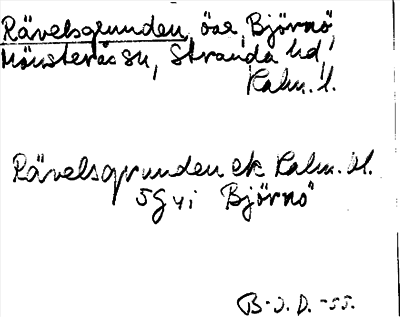 Rävelsgrunden, öar, Björnö,
Mönsterås sn, Stranda hd,
Kalm. l.
Rävelsgrunden ek Kalm. bl.
5g vi Björnö
B-J. D. -55.